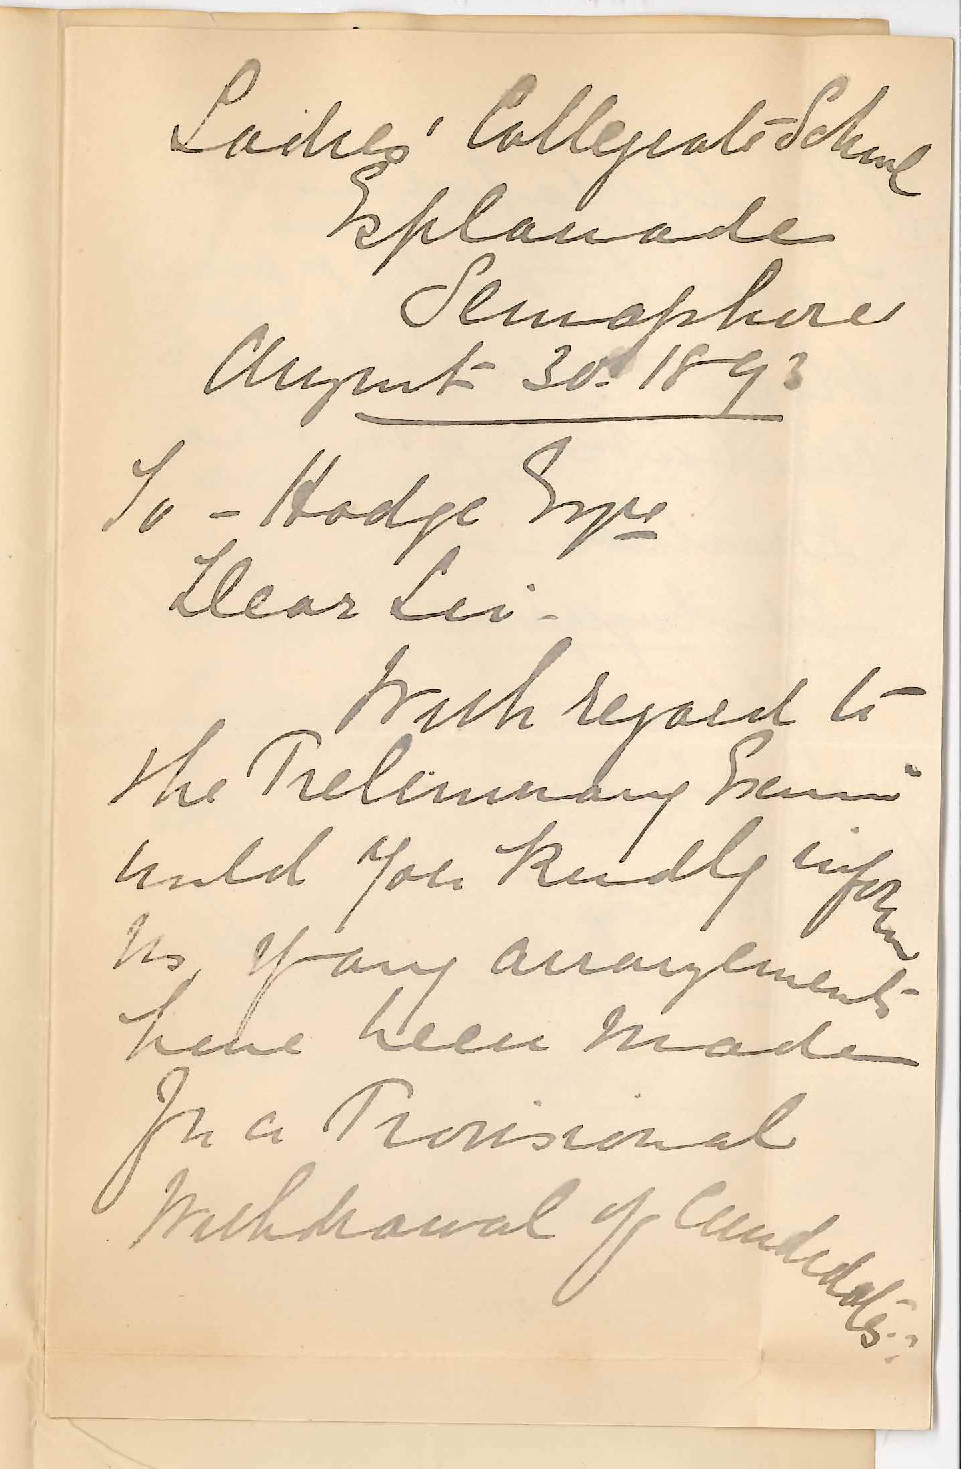 Ladies' Collegiate School
Esplanade
Semaphore
August 30. 1893
To - Hodge Esqre
Dear Sir -
With regard to
the Preliminary Exam
would you kindly inform
us, if any arrangements
have been made
for a Provisional
Withdrawal of Candidates?